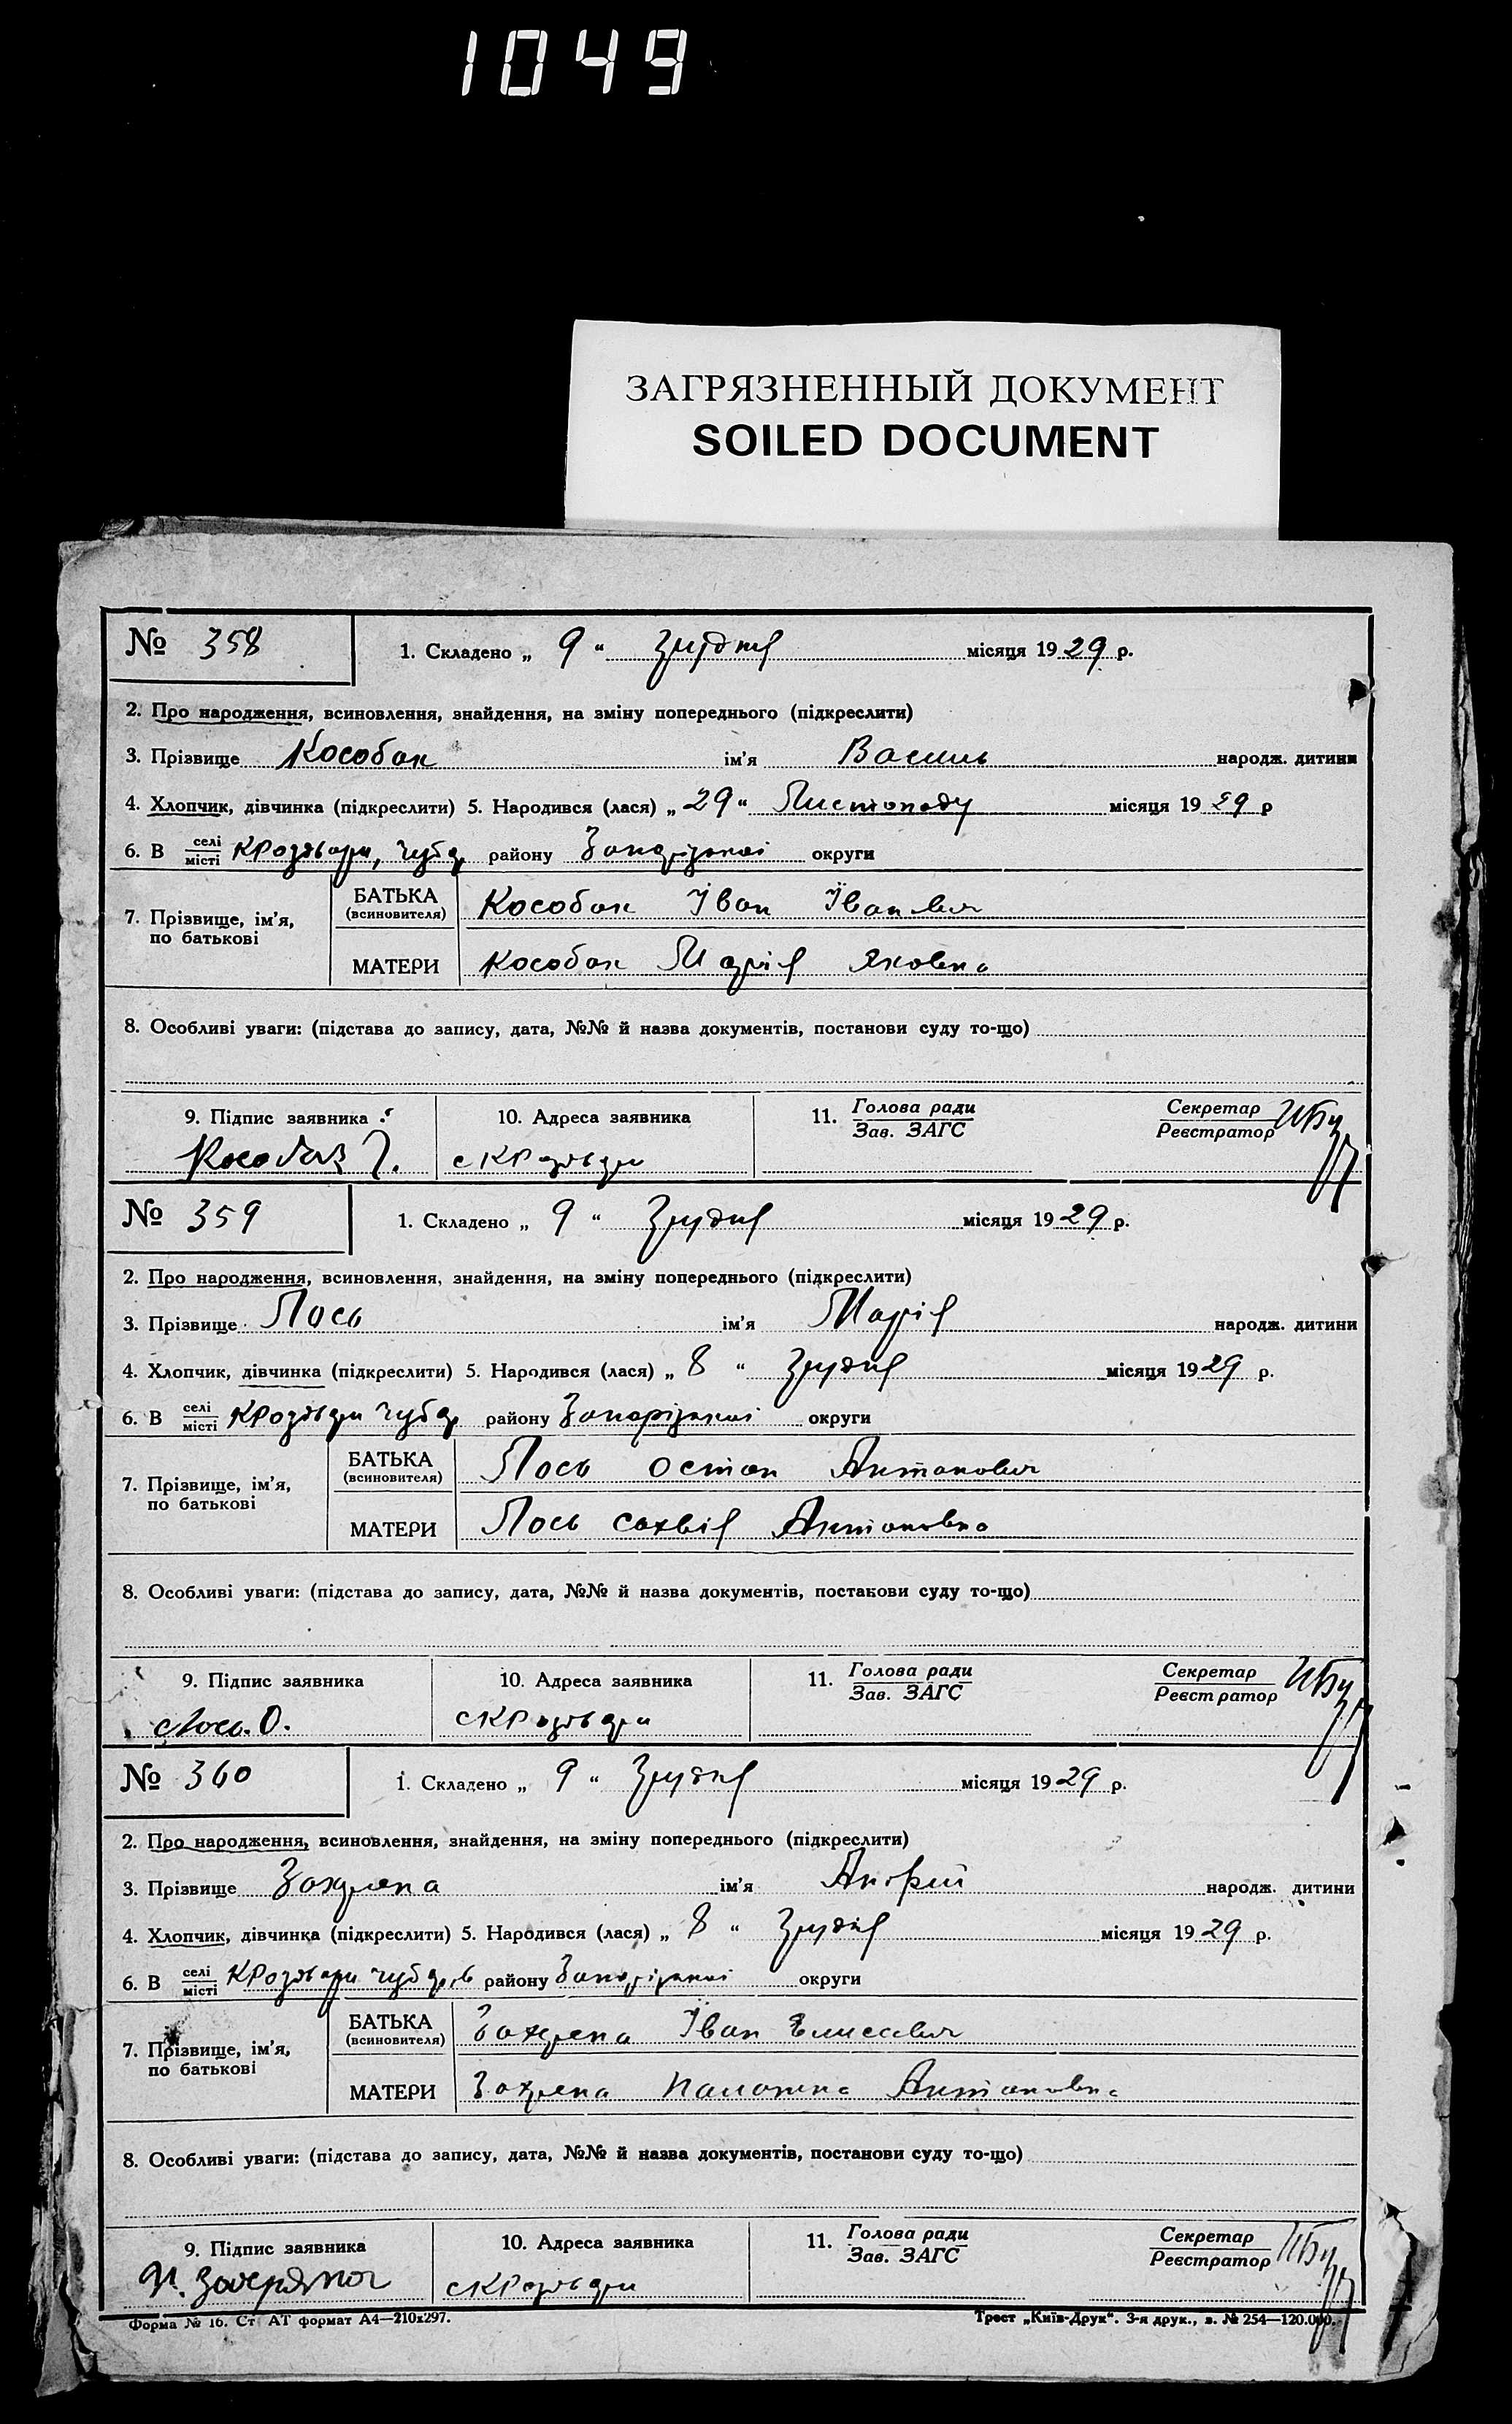 1049
ЗАГРЯЗНЕННЫЙ ДОКУМЕНТ
SOILED DOCUMENT
№ 358
1. Складено „ 9 “ грудня місяця 1929 р.
2. Про народження, всиновлення, знайдення, на зміну попереднього (підкреслити)
3. Прізвище Кособок ім'я Василь народж. дитини
4. Хлопчик, дівчинка (підкреслити) 5. Народився (лася) „ 29 “ Листопаду місяця 1929 р
6. В селі/місті району Запорізької округи
7. Прізвище, ім'я, по батькові
БАТЬКА (всиновителя) Кособок Іван Іванович
МАТЕРИ Кособок Марія Яковна
8. Особливі уваги: (підстава до запису, дата, №№ й назва документів, постанови суду то-що)
9. Підпис заявника 10. Адреса заявника 11. Голова ради Секретар
Зав. ЗАГС Реєстратор
№ 359
1. Складено „ 9 “ грудня місяця 1929 р.
2. Про народження, всиновлення, знайдення, на зміну попереднього (підкреслити)
3. Прізвище Лось ім'я Марія народж. дитини
4. Хлопчик, дівчинка (підкреслити) 5. Народився (лася) „ 8 “ грудня місяця 1929 р.
6. В селі/місті району Запорізької округи
7. Прізвище, ім'я, по батькові
БАТЬКА (всиновителя) Лось Остап Антонович
МАТЕРИ Лось Сахвія Антоновна
8. Особливі уваги: (підстава до запису, дата, №№ й назва документів, постанови суду то-що)
9. Підпис заявника 10. Адреса заявника 11. Голова ради Секретар
Зав. ЗАГС Реєстратор
Лось. О.
№ 360
1. Складено „ 9 “ грудня місяця 1929 р.
2. Про народження, всиновлення, знайдення, на зміну попереднього (підкреслити)
3. Прізвище ім'я Андрій народж. дитини
4. Хлопчик, дівчинка (підкреслити) 5. Народився (лася) „ 8 “ грудня місяця 1929 р.
6. В селі/місті району Запорізької округи
7. Прізвище, ім'я, по батькові
БАТЬКА (всиновителя) Іван Елисеевич
МАТЕРИ Антоновна
8. Особливі уваги: (підстава до запису, дата, №№ й назва документів, постанови суду то-що)
9. Підпис заявника 10. Адреса заявника 11. Голова ради Секретар
Зав. ЗАГС Реєстратор
Форма № 16. Ст АТ формат А4—210x297. Трест „Київ-Друк“. 3-я друк., з. № 254—120.000.